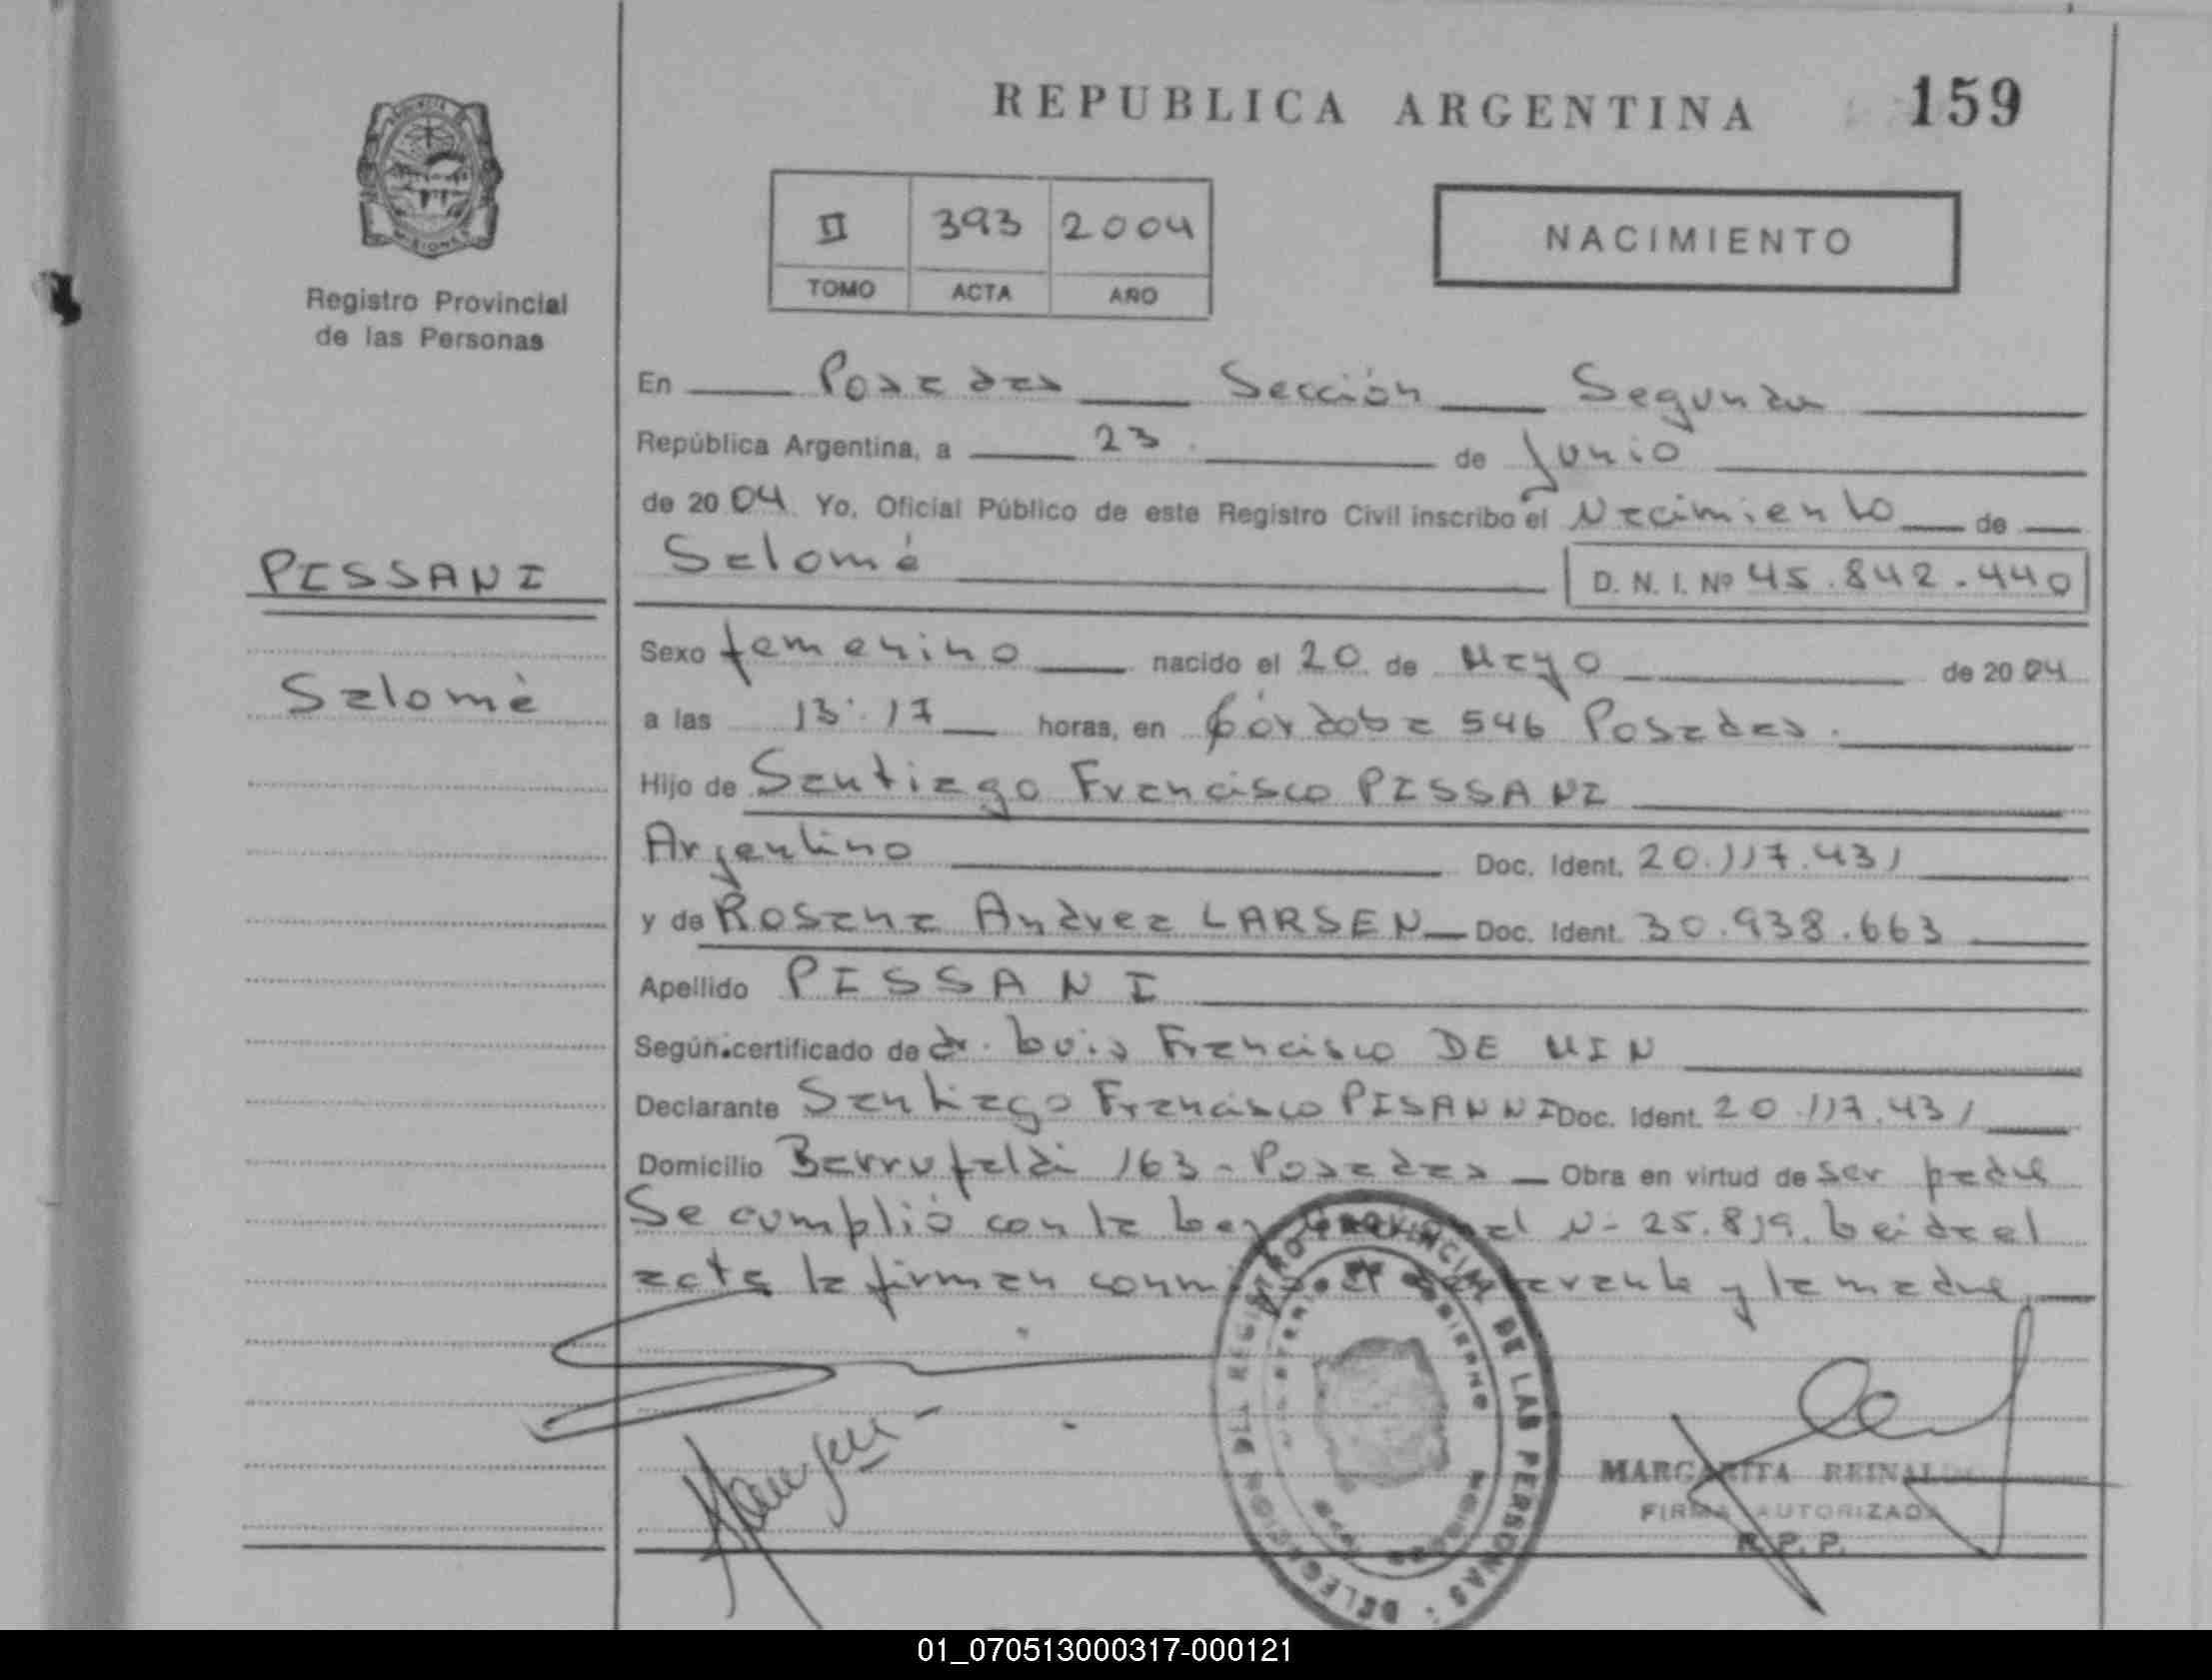 REPUBLICA ARGENTINA 159
II 393 2004
TOMO ACTA AÑO
NACIMIENTO
Registro Provincial
de las Personas
En Posadas Sección Segunda
República Argentina, a 23 de Junio
de 20 04 Yo, Oficial Público de este Registro Civil inscribo el Nacimiento de
Salomé D. N. I. Nº 45.842.440
PISSANI
Salomé
Sexo femenino nacido el 20 de Mayo de 20 04
a las 13:17 horas, en Córdoba 546 Posadas.
Hijo de Santiago Francisco PISSANI
Argentino Doc. Ident. 20.117.431
y de Rosana Andrea LARSEN Doc. Ident. 30.938.663
Apellido PISSANI
Según certificado de dr. Luis Francisco DE MIN
Declarante Santiago Francisco PISANNI Doc. Ident. 20.117.431
Domicilio Barrufaldi 163 - Posadas Obra en virtud de ser padre
Se cumplió con la Ley Nº 25.819. Leida el
acta la firman conmigo el declarante y la madre.
DELEGACION DEL REGISTRO PROVINCIAL DE LAS PERSONAS
MARGARITA REINALDO
FIRMA AUTORIZADA
R. P. P.
01_070513000317-000121